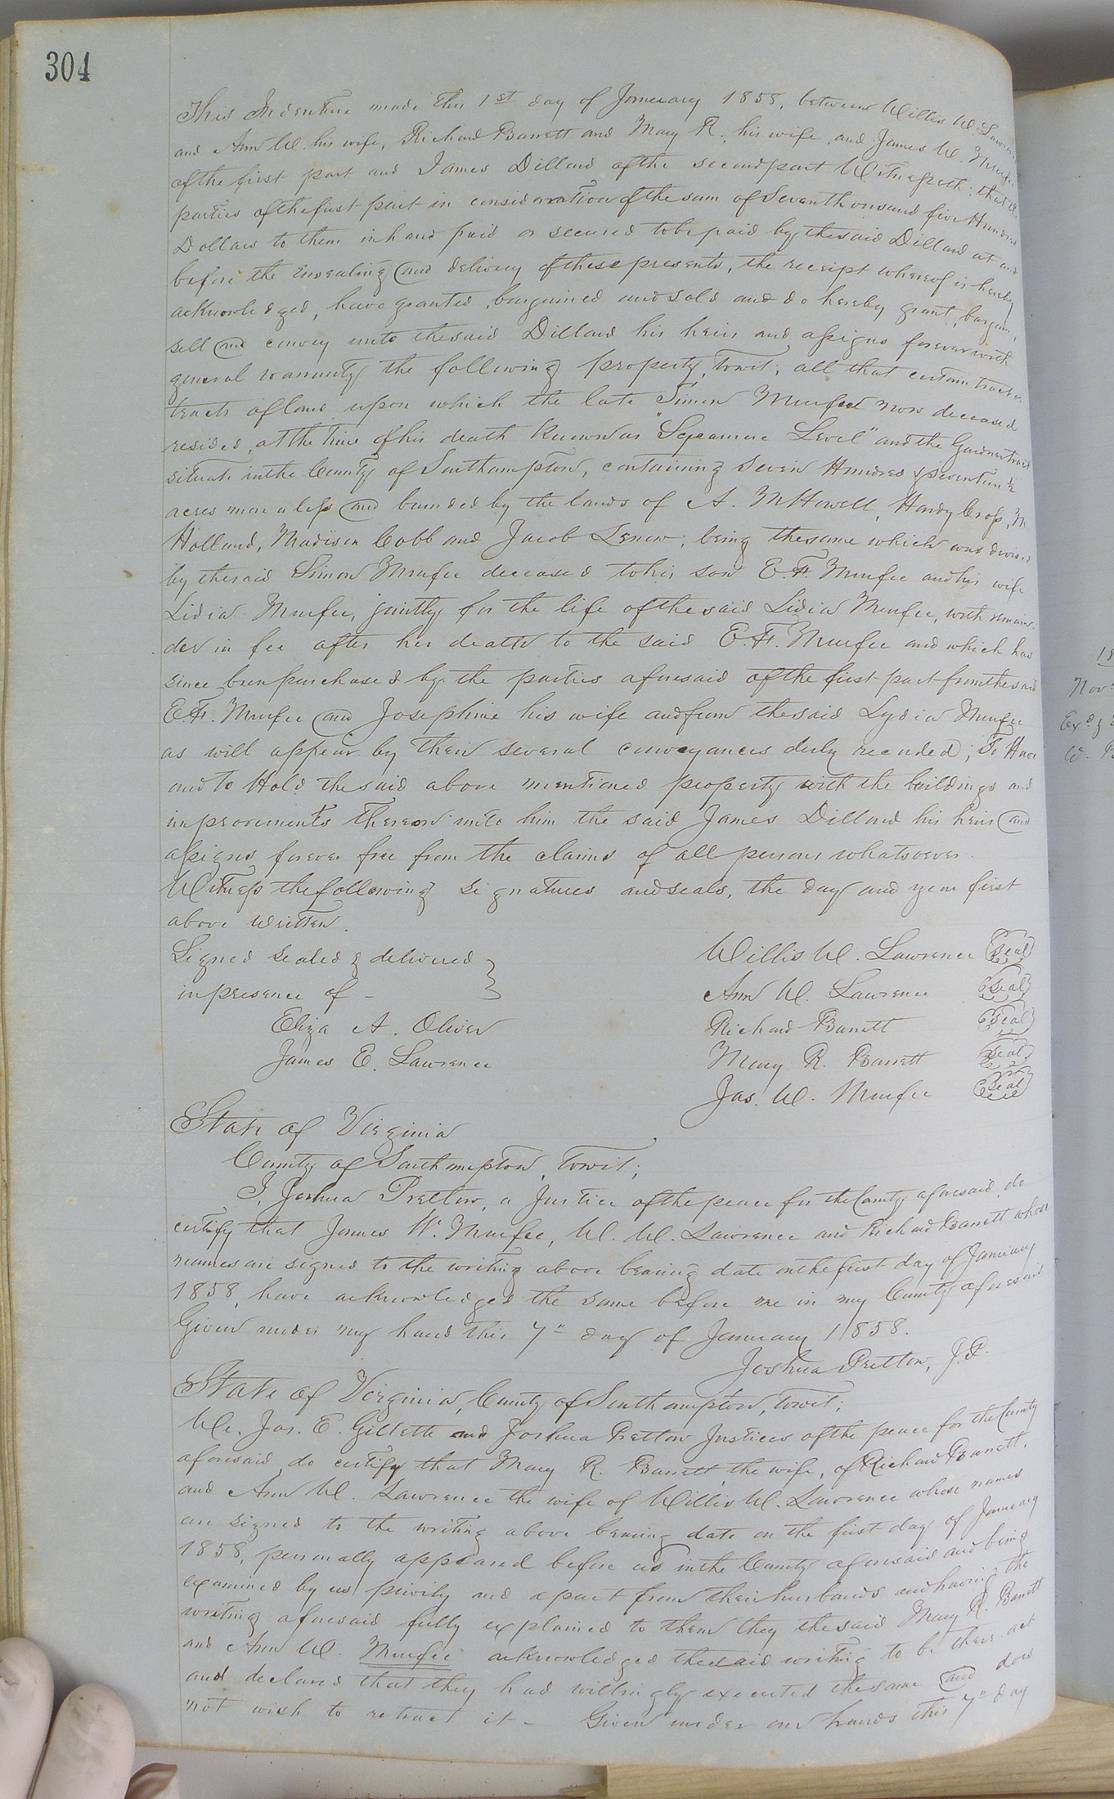 304
This Indenture made this 1st day of January 1858, between Willis W. Lawrence
and Ann W. his wife, Richard Barrett and Mary R. his wife, and James W. Murfee
of the first part and James Dillard of the second part Witnesseth: that the
parties of the first part in consideration of the sum of Seven thousand five Hundred
Dollars to them in hand paid or secured to be paid by the said Dillard at and
before the ensealing and delivery of these presents, the receipt whereof is hereby
acknowledged, have granted, bargained and sold and do hereby grant, bargain,
sell and convey unto the said Dillard his heirs and assigns forever with
general warranty the following property, towit, all that certain tract or
tracts of land upon which the late Simon Murfee now deceased
resided, at the time of his death known as "Sycamore Level" and the Gardner tract
situate in the County of Southampton, containing Seven Hundred & seventeen ½
acres more or less and bounded by the lands of A. M Howell, Hardy Cross, M
Holland, Madison Cobb and Jacob Lenow, being the same which was devised
by the said Simon Murfee deceased to his son E. F. Murfee and his wife
Lidia Murfee, jointly for the life of the said Lidia Murfee, with remain-
der in fee after her death to the said E. F. Murfee and which has
since been purchased by the parties aforesaid of the first part from the said
E. F. Murfee and Josephine his wife and from the said Lydia Murfee
as will appear by their several conveyances duly recorded; To Have
and to Hold the said above mentioned property with the buildings and
improvements thereon unto him the said James Dillard his heirs and
assigns forever free from the claims of all persons whatsoever.
Witness the following signatures and seals, the day and year first
above written.
Signed sealed & delivered
in presence of -
Eliza A. Oliver
James E. Lawrence
Willis W. Lawrence Seal
Ann W. Lawrence Seal
Richard Barrett Seal
Mary R. Barrett Seal
Jas. W. Murfee Seal
State of Virginia
County of Southampton, towit;
I, Joshua Pretlow, a Justice of the peace for the County aforesaid, do
certify that James W. Murfee, W. W. Lawrence and Richard Barrett whose
names are signed to the writing above bearing date on the first day of January
1858, have acknowledged the same before me in my County aforesaid
Given under my hand this 7" day of January 1858.
Joshua Pretlow, J.P.
State of Virginia, County of Southampton, towit;
We, Jas. E. Gillette and Joshua Pretlow Justices of the peace for the County
aforesaid, do certify that Mary R. Barrett the wife, of Richard Barrett,
and Ann W. Lawrence the wife of Willis W. Lawrence whose names
are signed to the writing above bearing date on the first day of January
1858, personally appeared before us in the County aforesaid and being
examined by us privily and apart from their husbands and having the
writing aforesaid fully explained to them they the said Mary R. Barrett
and Ann W. Murfee acknowledged the said writing to be their act
and declared that they had willingly executed the same and does
not wish to retract it - Given under our hands this 7" day
Nov